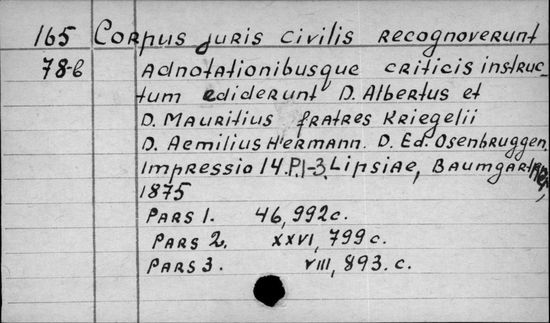 165 Corpus juris civilis recognoverunt
78-б Adnotationibusque criticis instruc-
tum ediderunt D. Albertus et
D. Mauritius fratres Kriegelii
D. Aemilius Hermann. D. Ed. Osenbruggen.
Impressio 14. P.1-3. Lipsiae, Baumgartner,
1875
Pars 1. 46, 992c.
Pars 2. XXVI, 799c.
Pars 3. VIII, 893.c.